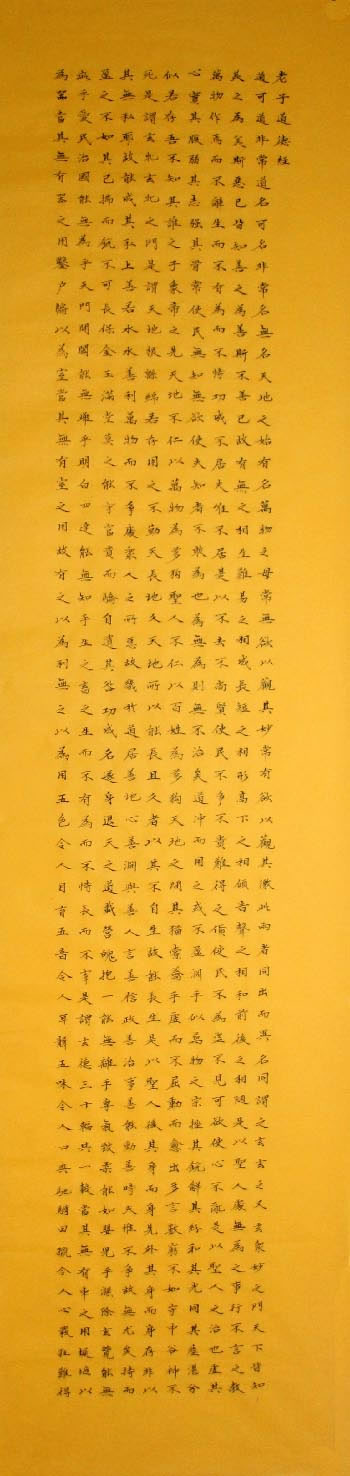 老子道德經
道可道非常道名可名非常名無名天地之始有名萬物之母常無欲以觀其妙常有欲以觀其徼此兩者同出而異名同謂之玄玄之又玄衆妙之門天下皆知
美之為美斯惡已皆知善之為善斯不善已故有無之相生難易之相成長短之相形高下之相傾音聲之相和前後之相隨是以聖人處無為之事行不言之教
萬物作焉而不離生而不有為而不恃功成不居夫惟不居是以不去不尚賢使民不爭不貴難得之貨使民不為盜不見可欲使心不亂是以聖人之治也虛其
心實其腹弱其志强其骨常使民無知無欲使夫知者不敢為也為無為則無不治矣道冲而用之或不盈淵乎似萬物之宗挫其銳解其紛和其光同其塵湛兮
似若存吾不知其誰之子象帝之先天地不仁以萬物為芻狗聖人不仁以百姓為芻狗天地之間其猶橐籥乎虛而不屈動而愈出多言數窮不如守中谷神不
死是謂玄牝玄牝之門是謂天地根綿綿若存用之不勤天長地久天地所以能長且久者以其不自生故能長生是以聖人後其身而身先外其身而身存非以
其無私耶故能成其私上善若水水善利萬物而不爭處衆人之所惡故幾於道居善地心善淵與善人言善信政善治事善能動善時夫惟不爭故無尤矣持而
盈之不如其已揣而銳不可長保金玉滿堂莫之能守富貴而驕自遺其咎功成名遂身退天之道載營魄抱一能無離乎專氣致柔能如嬰兒乎滌除玄覽能無
疵乎愛民治國能無為乎天門開闔能無雌乎明白四達能無知乎生之畜之生而不有為而不恃長而不宰是謂玄德三十輻共一轂當其無有車之用埏埴以
為器當其無有器之用鑿戶牖以為室當其無有室之用故有之以為利無之以為用五色令人目盲五音令人耳聾五味令人口爽馳騁田獵令人心發狂難得